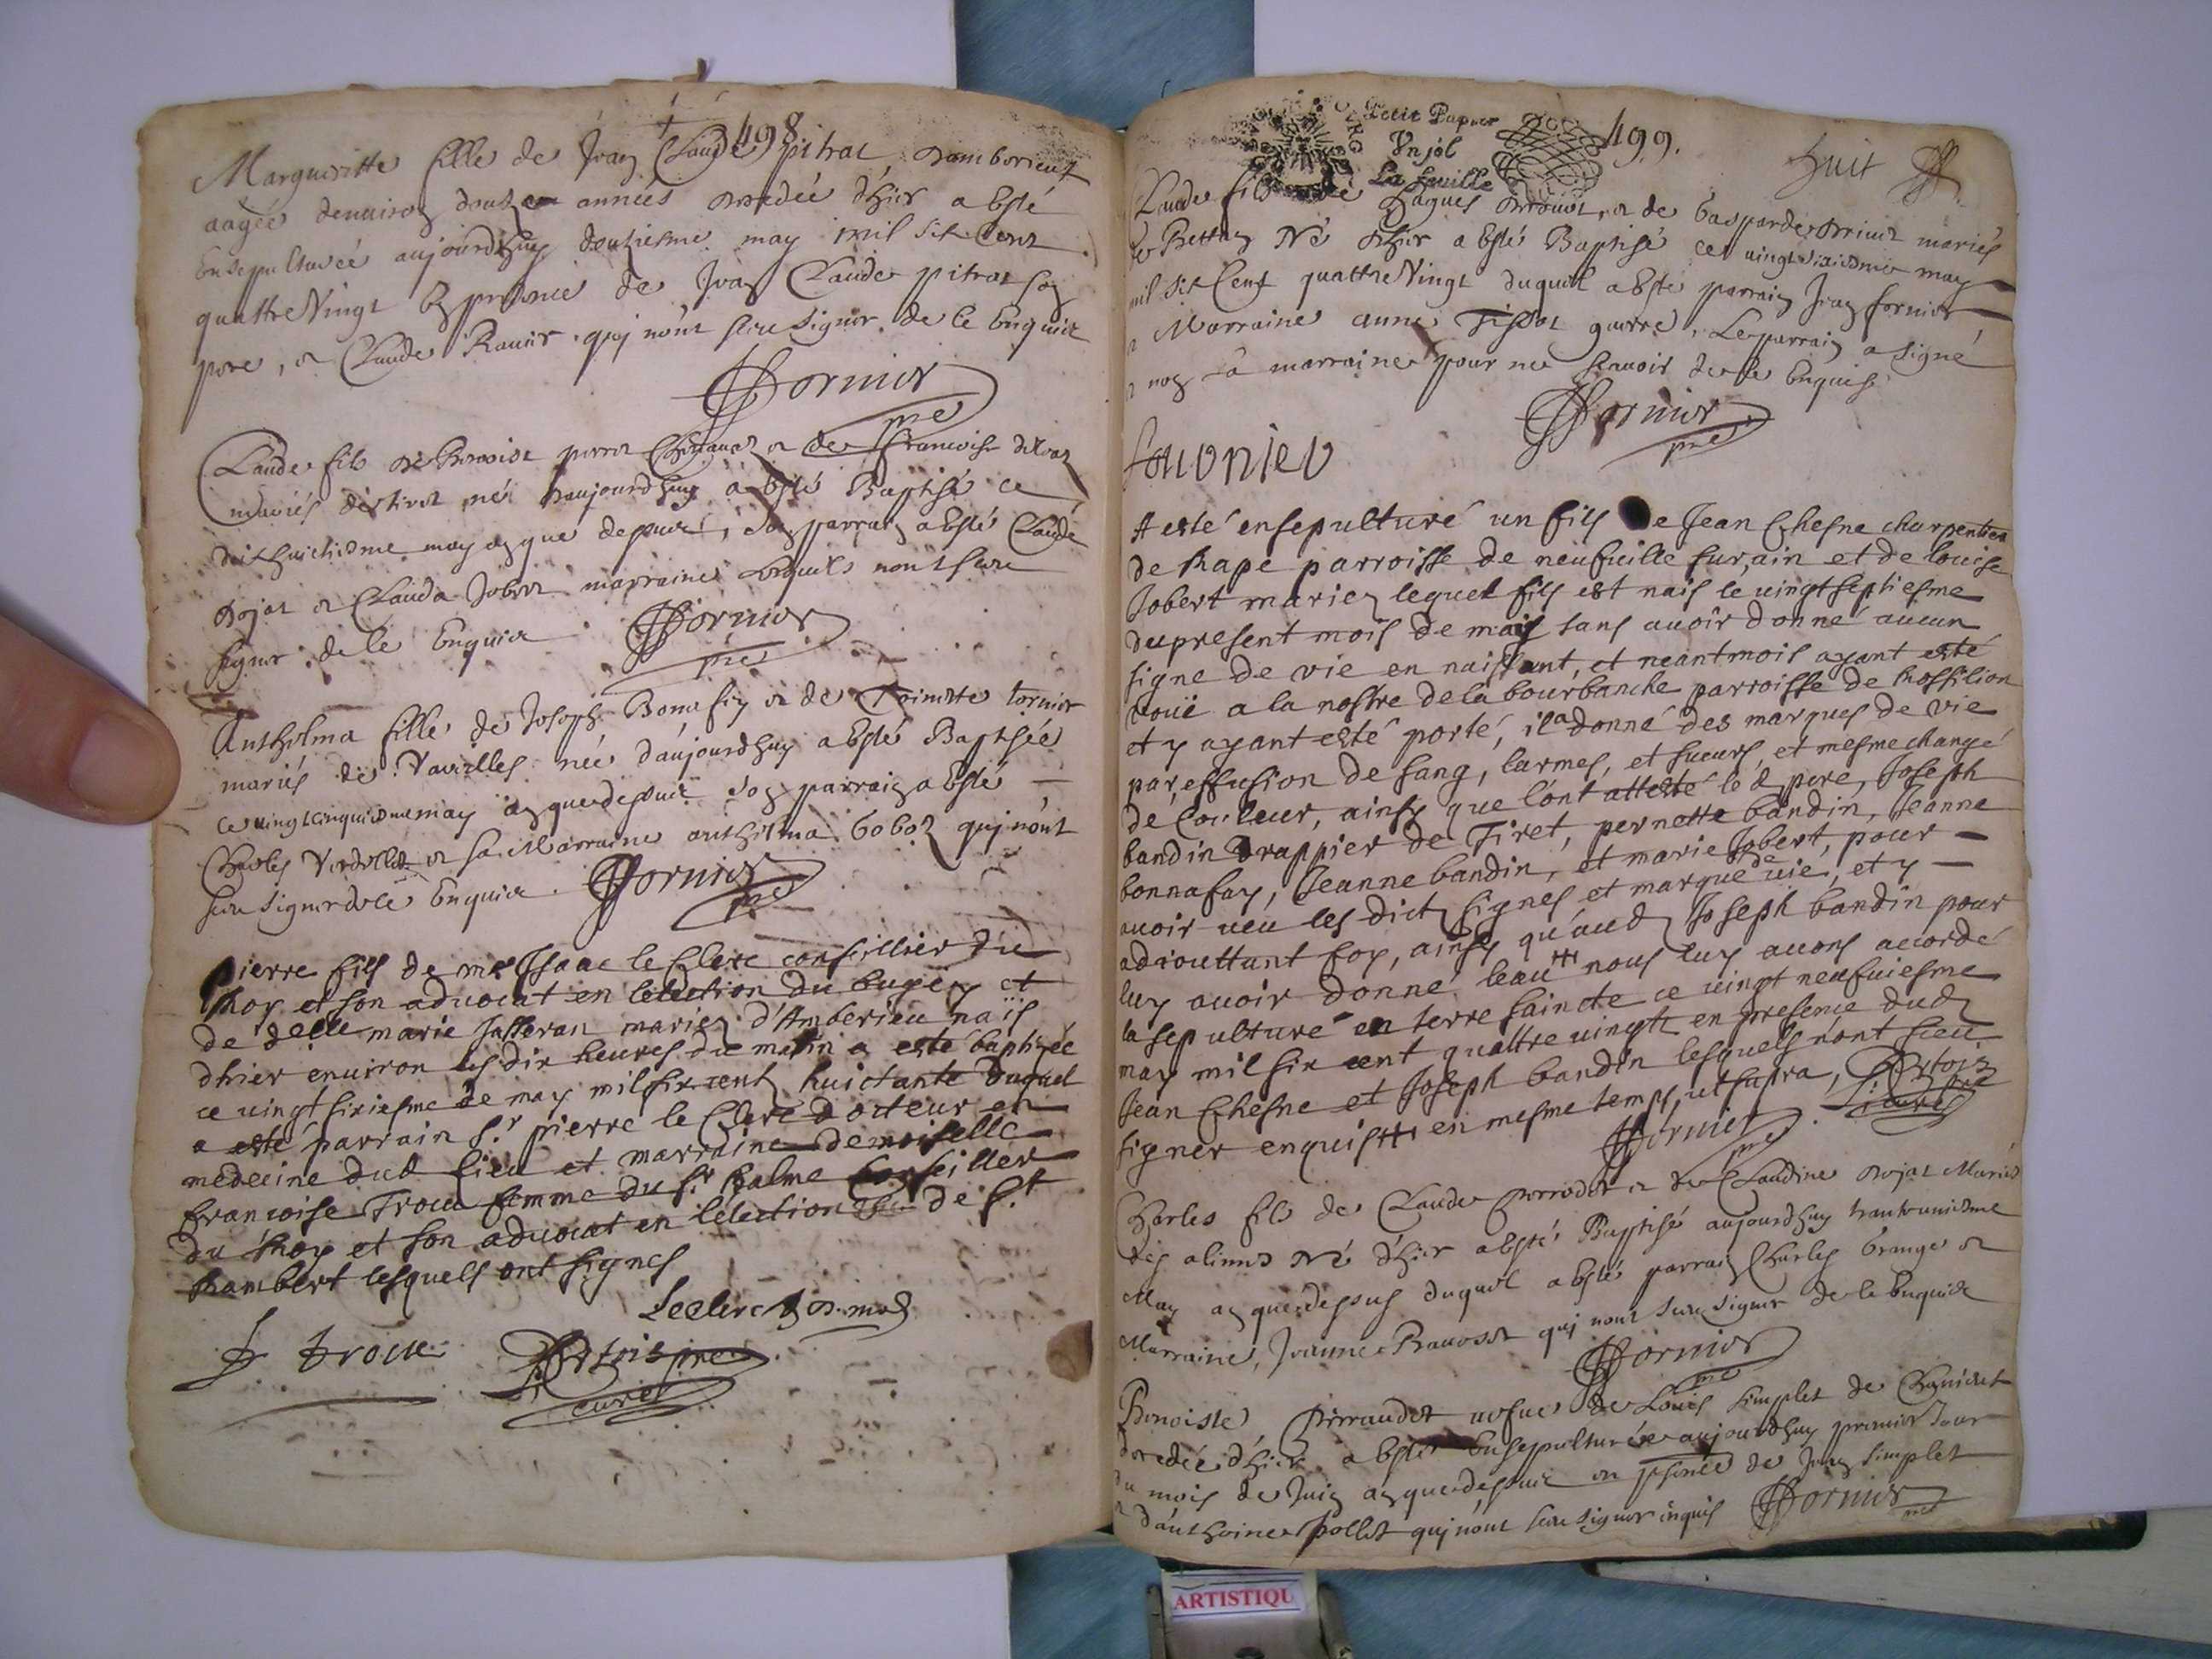 498
Margueritte fille de Jean Claude pitrat damberieux
aagée denviron douze années decedée d'hier a Esté
Ensepulturée aujourdhuy douziesme may mil six Cent
quattre Vingt En presence de Jean Claude pitrat son
pere, et Claude Ravier qui n'ont sceu signer de ce Enquis
Fornier
pre
Claude fils de Benoist perret et de francoise
mariés de tiret né d'aujourdhuy a Esté Baptisé ce
dixhuictiesme may an que dessus, son parrain a Esté Claude
Dojat et Clauda Jobert marraine Lesquels n'ont sceu
signer de ce Enquis
Fornier
pre
Anthelma fille de Joseph Bonafay et de tornier
mariés de Vareilles née d'aujourdhuy a Esté Baptisée
ce vingtcinquiesme may an que dessus son parrain a Esté
Charles Verdellet et sa Marraine anthelma bobot qui n'ont
sceu signer de ce Enquis
Fornier
pre
Pierre fils de mre Isaac le Clerc conseillier du
Roy et son advocat en lelection du bugey et
de delle marie Jasseran mariez d'Amberieu nais
dhier environ les dix heures du matin a esté baptizée
ce vingt sixiesme de may mil six cent huictante Duquel
a esté parrain sr pierre le Clerc docteur en
medecine dud lieu et marraine demoiselle
francoise Trocu femme du sr Balme Conseiller
du Roy et son advocat en lelection de St
Rambert lesquels ont signes
Leclerc
F Trocu
Ortois pre
curé
Petit Papier
Un sol
La feuille
499.
huit
Claude fils de Jaques et de Gasparde mariés
de Bettan Né d'hier a Esté Baptisé ce vingt sixiesme may
mil six Cent quattre Vingt duquel a Esté parrain Jean fornier
et Marraine anne Tissot guerre, Le parrain a signé
et non la marraine pour ne scavoir de ce Enquise
Fornier
pre
fournier
A esté ensepulturé un fils de Jean Chesne charpentier
de Rape parroisse de neufville sur ain et de louise
Jobert mariez lequel fils est nais le vingt septiesme
du present mois de may sans avoir donné aucun
signe de vie en naissant, et neantmois ayant esté
voüé a la nostre de la bourbanche parroisse de Rossilion
et y ayant esté porté, il a donné des marques de vie
par effusion de sang, larmes, et sueurs, et mesme changé
de Couleur, ainsy que l'ont attesté le d pere, Joseph
bandin Drappier de Tiret, pernette bandin, Jeanne
bonnafay, Jeanne bandin, et marie Jobert, pour
avoir veu les dicts signes et marque de vie, et y
adjouttant foy, ainsy qu'aud Joseph bandin pour
luy avoir donné l'eau nous luy avons accordé
la sepulture en terre saincte ce vingt neufuiesme
may mil six cent quattre vingts en presence dud
Jean Chesne et Joseph bandin lesquels n'ont sceu
signer enquis en mesme temps, ut supra, Ortois
Fornier
pre
curé
Charles fils de Claude perrodet et de Claudine Dojat Mariés
des alimes Né d'hier a Esté Baptisé aujourdhuy trante uniesme
May an que dessus duquel a Esté parrain Charles Grange et
Marraine, Jeanne Ravosset qui n'ont sceu signer de ce Enquis
Fornier
pre
Benoiste perraudet vefue de Louis simplet de
decedée d'hier a Esté Ensepulturée aujourdhuy premier Jour
du mois de Juin an que dessus en presence de Jean simplet
et d'anthoine pollet qui n'ont sceu signer inquis
Fornier
pre
ARTISTIQU